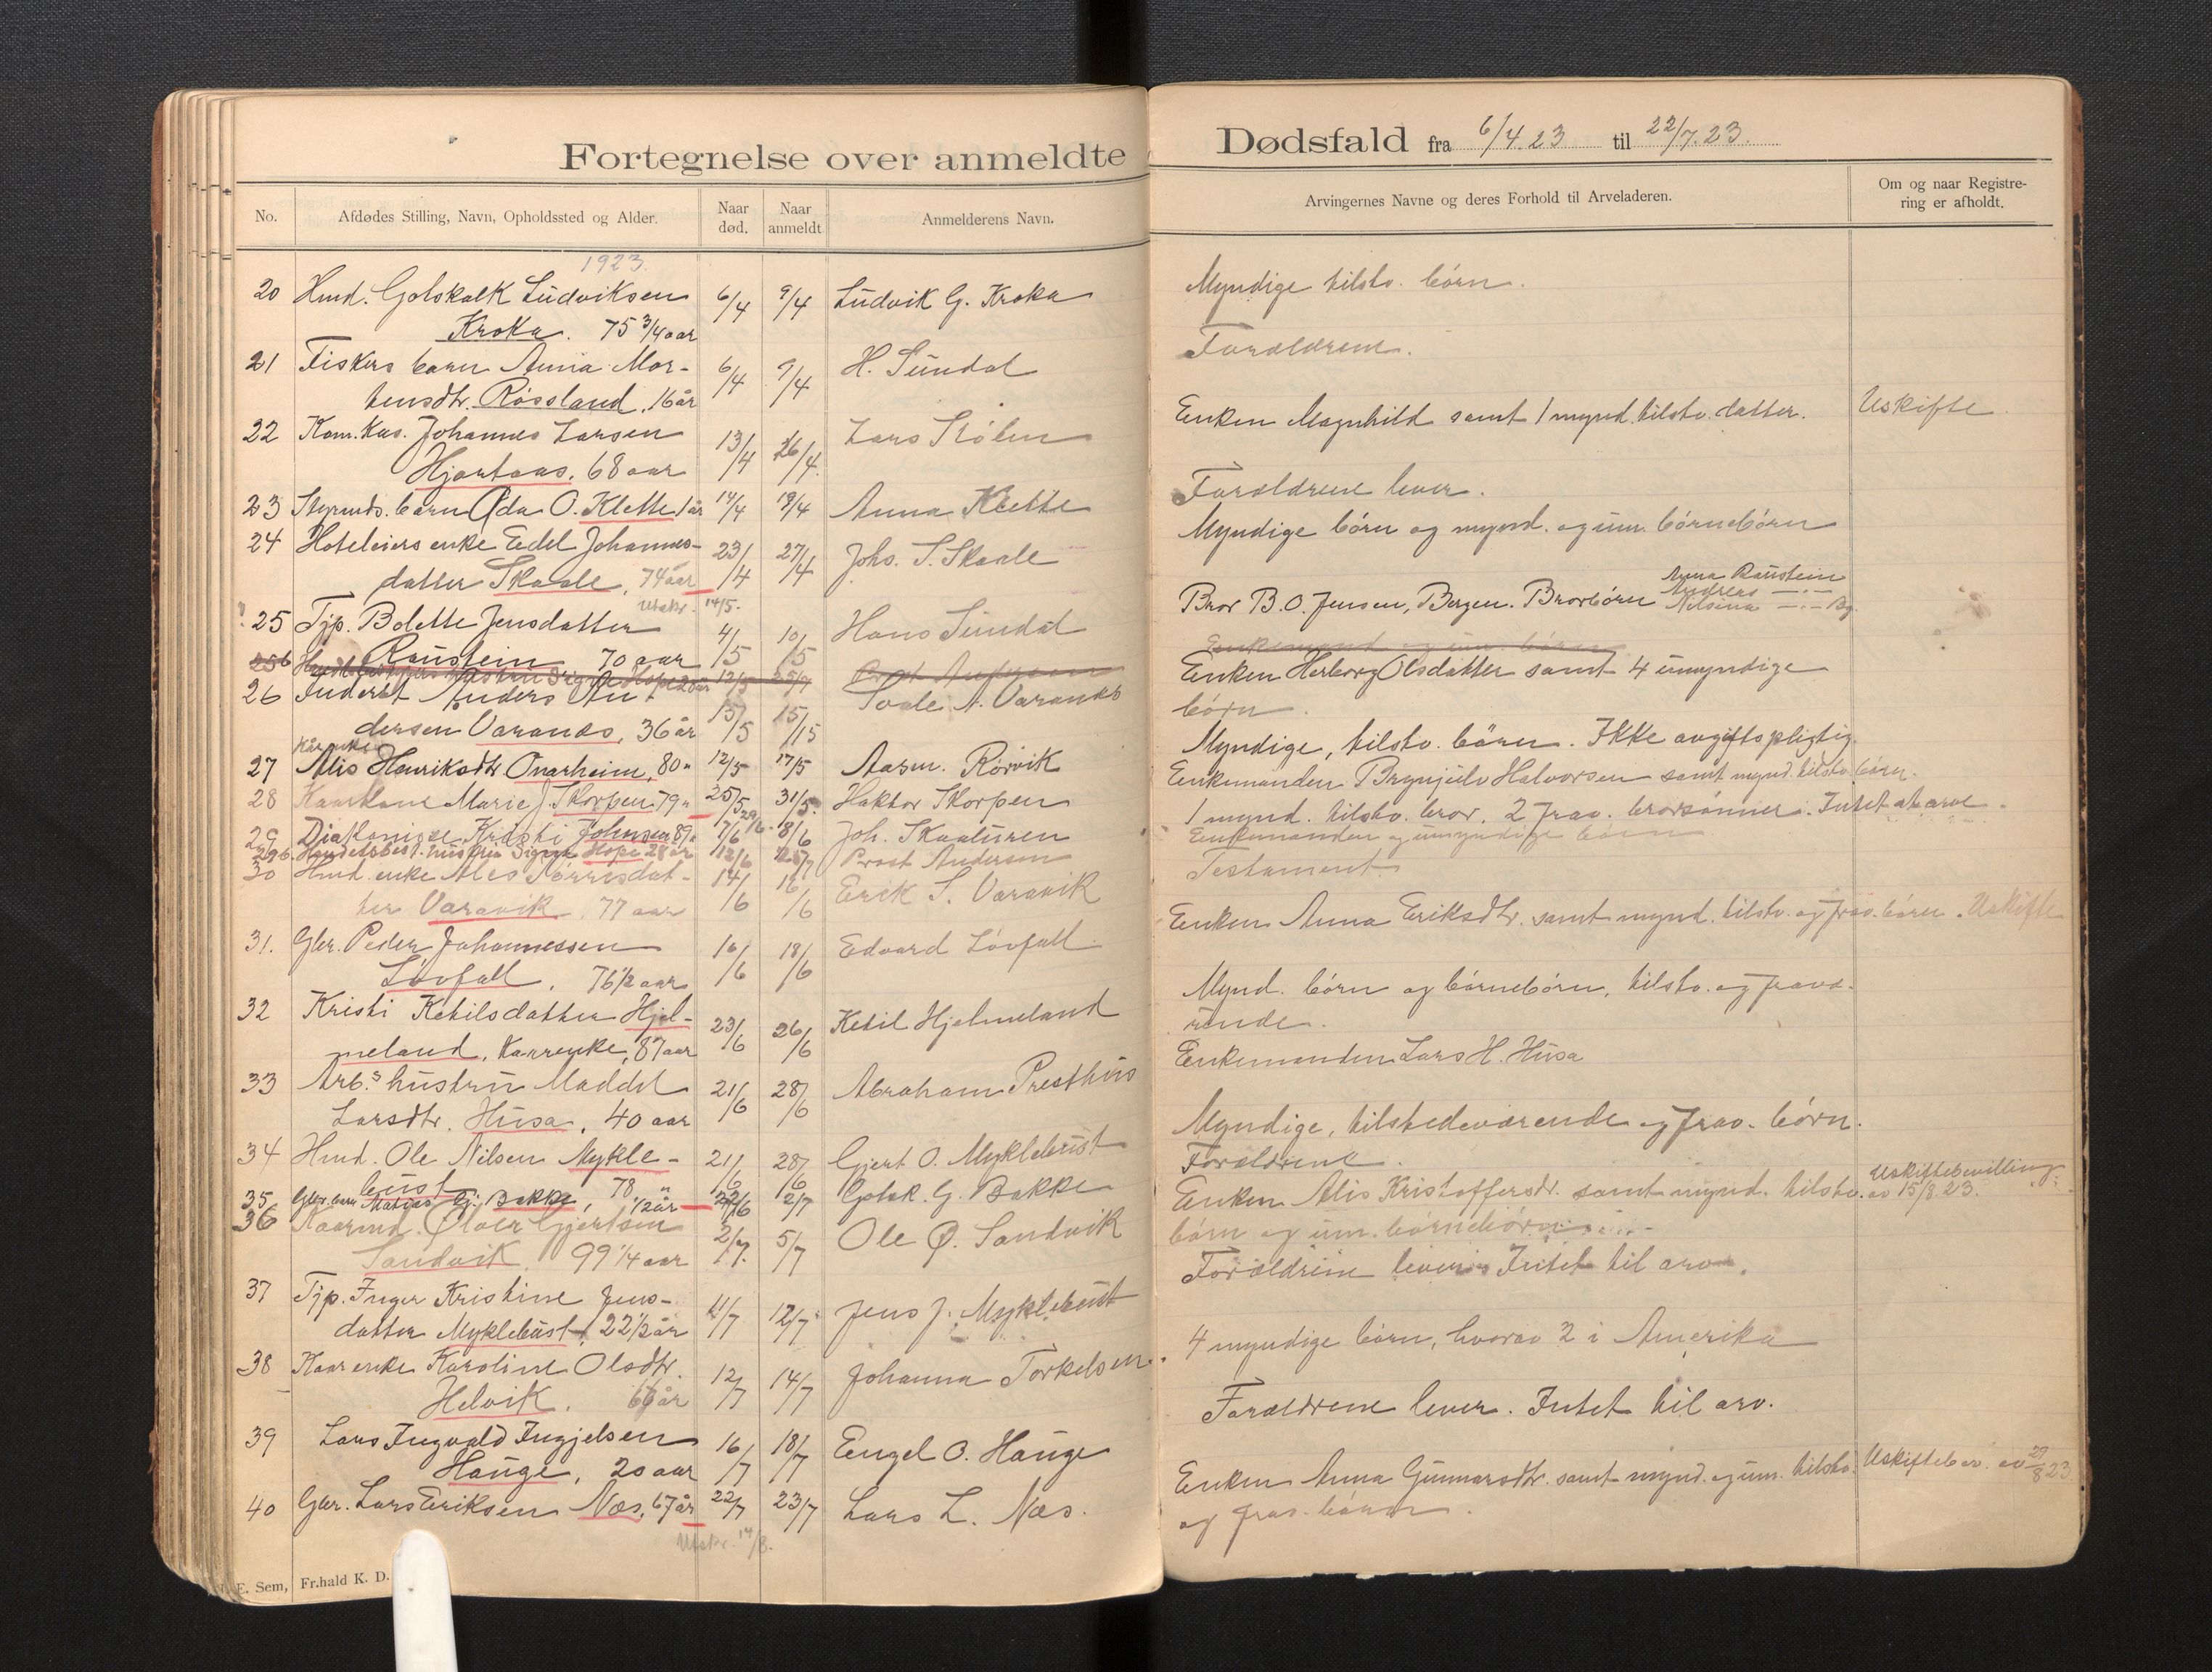 Fortegnelse over anmeldte
No. Afdødes Stilling, Navn, Opholdssted og Alder. Naar død. Naar anmeldt Anmelderens Navn.
1923.
20 Hmd. Golskalk Ludviksen 6/4 9/4 Ludvik G. Kroka
Kroka. 75 3/4 aar
21 Fiskers barn Anna Mor- 6/4 9/4 H. Sundal
tensdtr. Røssland, 16 år
22 Kom. Kas. Johannes Larsen 13/4 26/4. Lars Stølen
Hjartaas, 68 aar
23 Styrmds. barn Ada O. Klette 1 år 14/4 19/4 Anna Klette
24 Hoteleiers enke Eedel Johannes- 23/4 27/4 Johs. S. Skaale
datter Skaale, 74 aar
Utskr. 14/5.
25 Tjp. Bolette Jensdatter 4/5 10/5 Hans Sundal
Raustein 70 aar
26 Inderst Anders An- 15/5 15/5 Svale A. Varanes
dersen Varanes, 36 år
Kår enke
27 Alis Henriksdtr Onarheim, 80 " 12/5 17/5 Aasm. Rørvik
28 Kaarkone Marie J. Skorpen 79 " 25/5 31/5. Haktor Skorpen
29 Diakonisse Kristi Johnsen 7/6 8/6 Joh. Skaaturen
29b. Handelsbest. hustru Signe Hope 28 år 12/6 25/7 Prost Andersen
30 Hmd. enke Ales Norrisdat- 14/6 16/6 Erik S. Varavik
ter Varavik, 77 aar
31. Gbr. Peder Johannessen 16/6 18/6 Edvard Løvfall
Løvfall, 76 1/2 aar
32 Kristi Ketilsdatter Hjel- 23/6 26/6 Ketil Hjelmeland
meland, Kaarenke, 87 aar
33 Arb.s hustru Maddel 21/6 28/6 Abraham Presthus
Larsdtr. Husa, 40 aar
34 Hmd. Ole Nilsen Mykle- 21/6 28/6 Gjert O. Myklebust
bust 78 "
35 Gbr. barn Matias Gj. Bakke, 1/2 år 22/6 2/7 Golsk. G. Bakke
36 Kaarmd. Øloer Gjertsen 2/7. 5/7 Ole Ø. Sandvik
Sandvik, 99 1/4 aar
37 Tjp. Inger Kristine Jens- 11/7 12/7 Jens J. Myklebust
datter Myklebust, 22 1/2 år
38 Kaarenke Karoline Olsdtr. 12/7 14/7 Johanna Torkelsen.
Helvik. 66 år
39 Lars Ingvald Ingjelsen 16/7 18/7 Engel O. Hauge
Hauge, 20 aar
40 Gbr. Lars Eriksen Næs, 67 år 22/7 23/7 Lars L. Næs.
Utskr. 14/8.
E. Sem, Fr.hald K. D.
Dødsfald fra 6/4.23 til 22/7.23.
Arvingernes Navne og deres Forhold til Arveladeren. Om og naar Registrering er afholdt.
Myndige tilstv. börn.
Forældrene.
Enken Magnhild samt 1 mynd. tilstv. datter. Uskifte
Forældrene lever.
Myndige börn og mynd. og um. börnebörn
Bror B. O. Jensen, Bergen. Brorbörn Anna Raustein
Andreas —"—
Nilsina —"— Bg.
Enkemand og um. börn
Enken Herborg Olsdatter samt 4 umyndige
börn.
Myndige, tilstv. börn. Ikke avgiftspligtig.
Enkemanden Brynjulv Halvorsen samt mynd. tilstv. börn.
1 mynd. tilstv. bror. 2 frav. brorsønner. Intet at arve.
Enkemanden og umyndige börn
Testament.
Enken Anna Eriksdtr. samt mynd. tilstv. og frav. börn. Uskifte
Mynd. börn og börnebörn, tilstv. og fravæ-
rende.
Enkemanden Lars H. Husa
Myndige, tilstedeværende og frav. börn.
Forældrene.
Enken Alis Kristoffersdtr. samt mynd. tilstv. Uskiftebevilling av 15/8.23.
börn og um. börnebörn
Forældrene lever. Intet til arv.
4 myndige börn, hvorav 2 i Amerika
Forældrene lever. Intet til arv.
Enken Anna Gunnarsdtr. samt mynd. og um. tilstv. Uskiftebev. av 29/8 23.
og frav. börn.